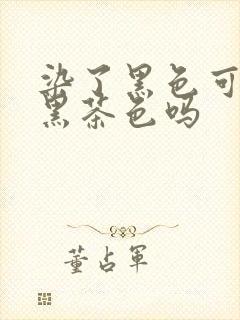 染了黑色可
黑茶色吗
董占军